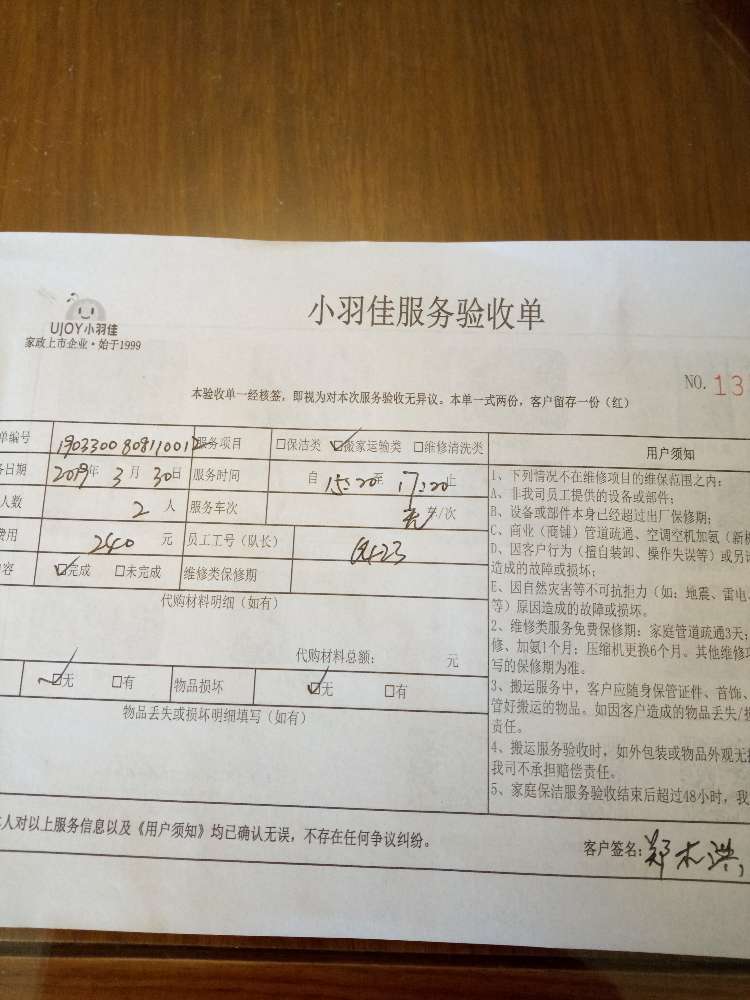 UJOY小羽佳
家政上市企业·始于1999
小羽佳服务验收单
NO. 13
本验收单一经核签，即视为对本次服务验收无异议。本单一式两份，客户留存一份（红）
单编号 190330080811001 服务项目 □保洁类 ☑搬家运输类 □维修清洗类 用户须知
务日期 2019年 3月 30日 服务时间 自 15:20至 17:20止
人数 2 人 服务车次 车/次
费用 240 元 员工工号（队长）
内容 ☑完成 □未完成 维修类保修期
代购材料明细（如有）
代购材料总额： 元
☑无 □有 物品损坏 ☑无 □有
物品丢失或损坏明细填写（如有）
1、下列情况不在维修项目的维保范围之内：
A、非我司员工提供的设备或部件；
B、设备或部件本身已经超过出厂保修期；
C、商业（商铺）管道疏通、空调空机加氨（新机
D、因客户行为（擅自装卸、操作失误等）或另
造成的故障或损坏；
E、因自然灾害等不可抗拒力（如：地震、雷电、
等）原因造成的故障或损坏。
2、维修类服务免费保修期：家庭管道疏通3天；
修、加氨1个月；压缩机更换6个月。其他维修项
写的保修期为准。
3、搬运服务中，客户应随身保管证件、首饰、
管好搬运的物品。如因客户造成的物品丢失/损
责任。
4、搬运服务验收时，如外包装或物品外观无
我司不承担赔偿责任。
5、家庭保洁服务验收结束后超过48小时，我
本人对以上服务信息以及《用户须知》均已确认无误，不存在任何争议纠纷。
客户签名：郑木洪